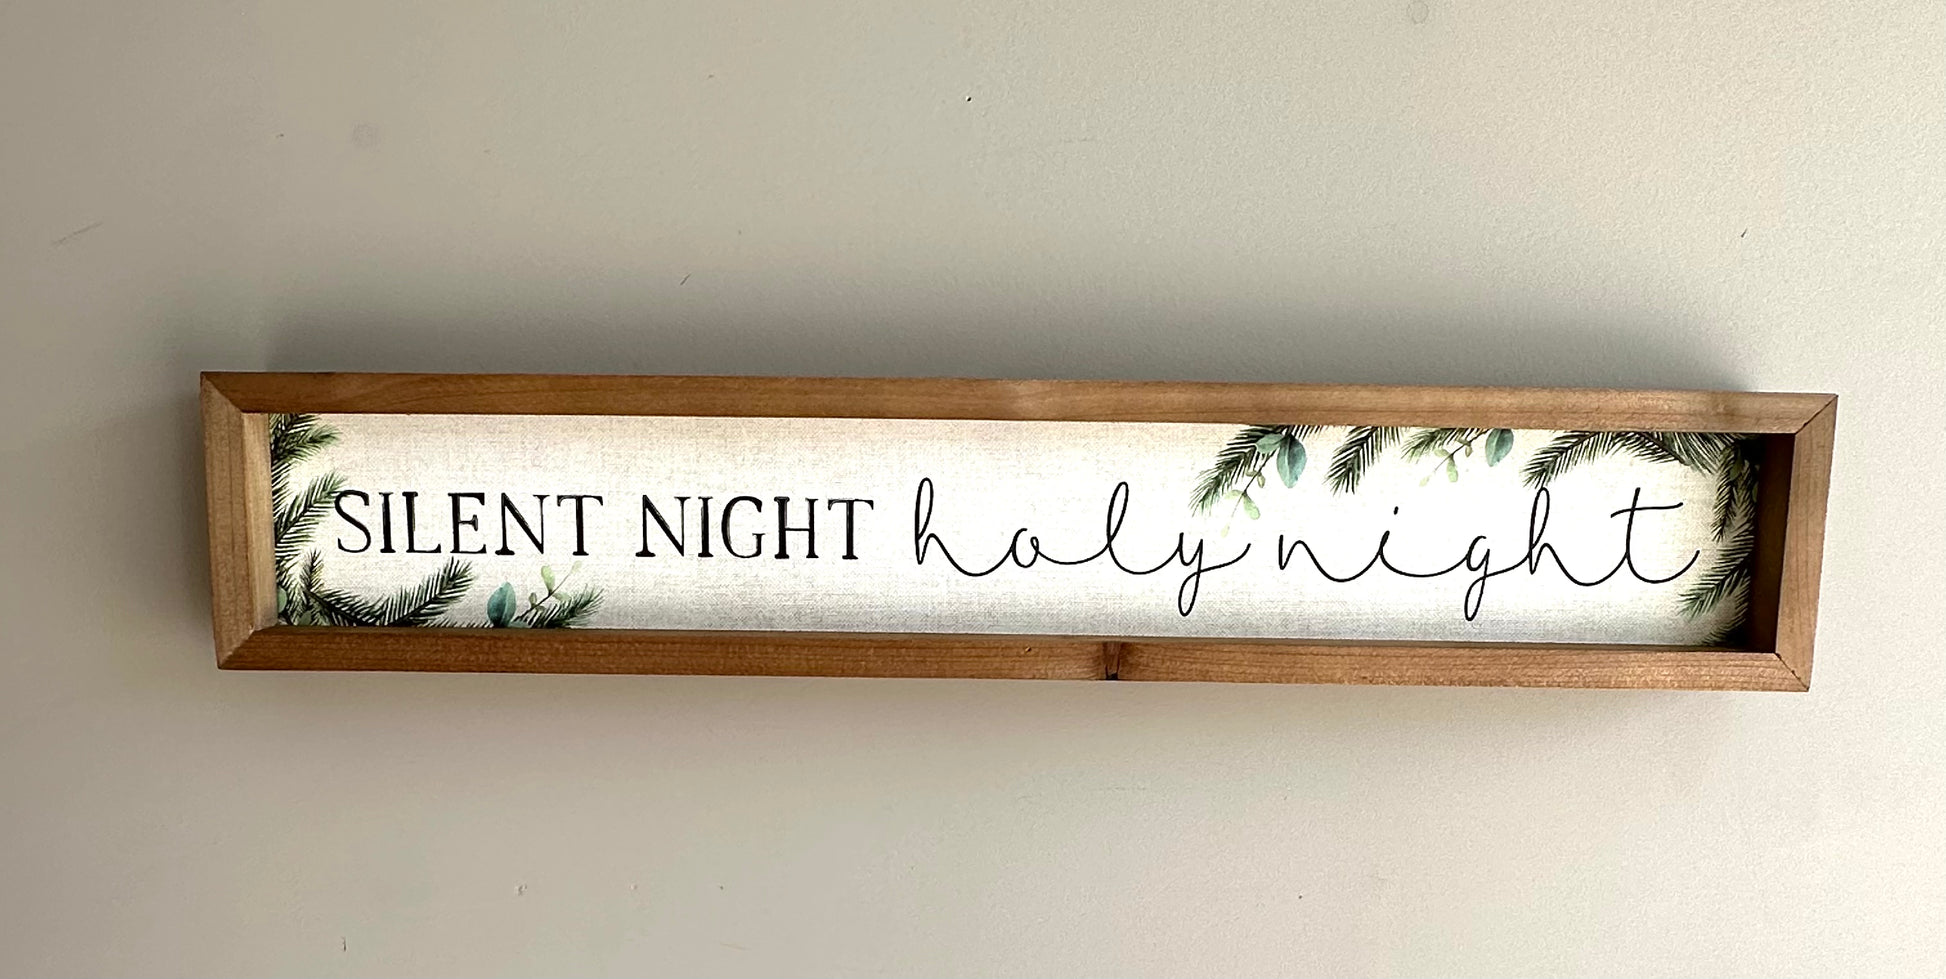 SILENT NIGHT holy night